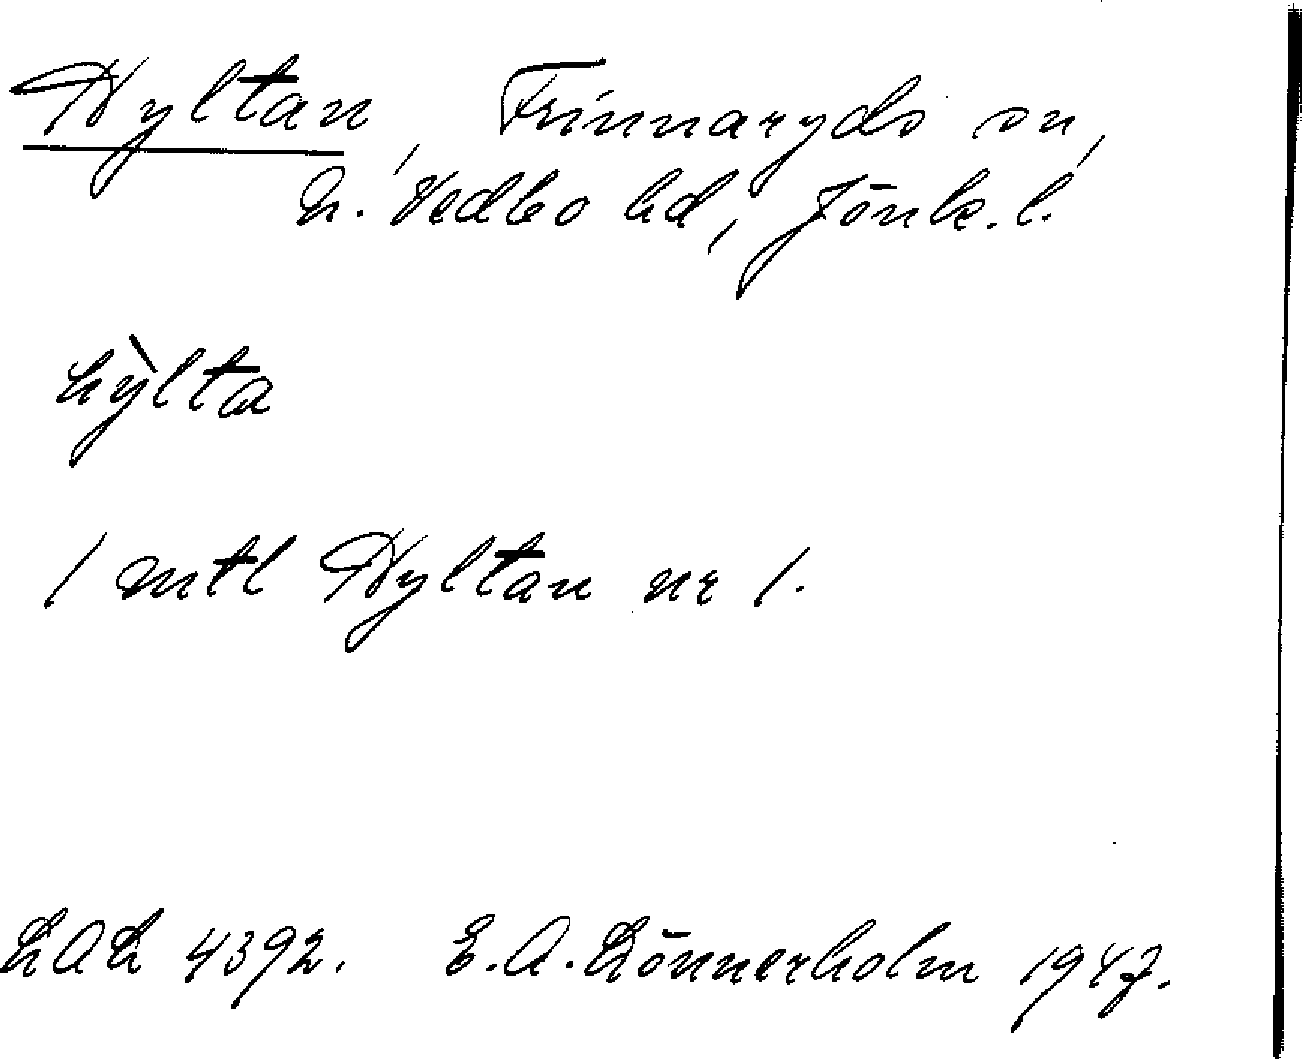 Hyltan, Frinnaryds sn,
N. Vedbo hd, Jönk. l.
hỳlta
1 mtl Hyltan nr 1.
LAL 4392. E. A. Lönnerholm 1947.